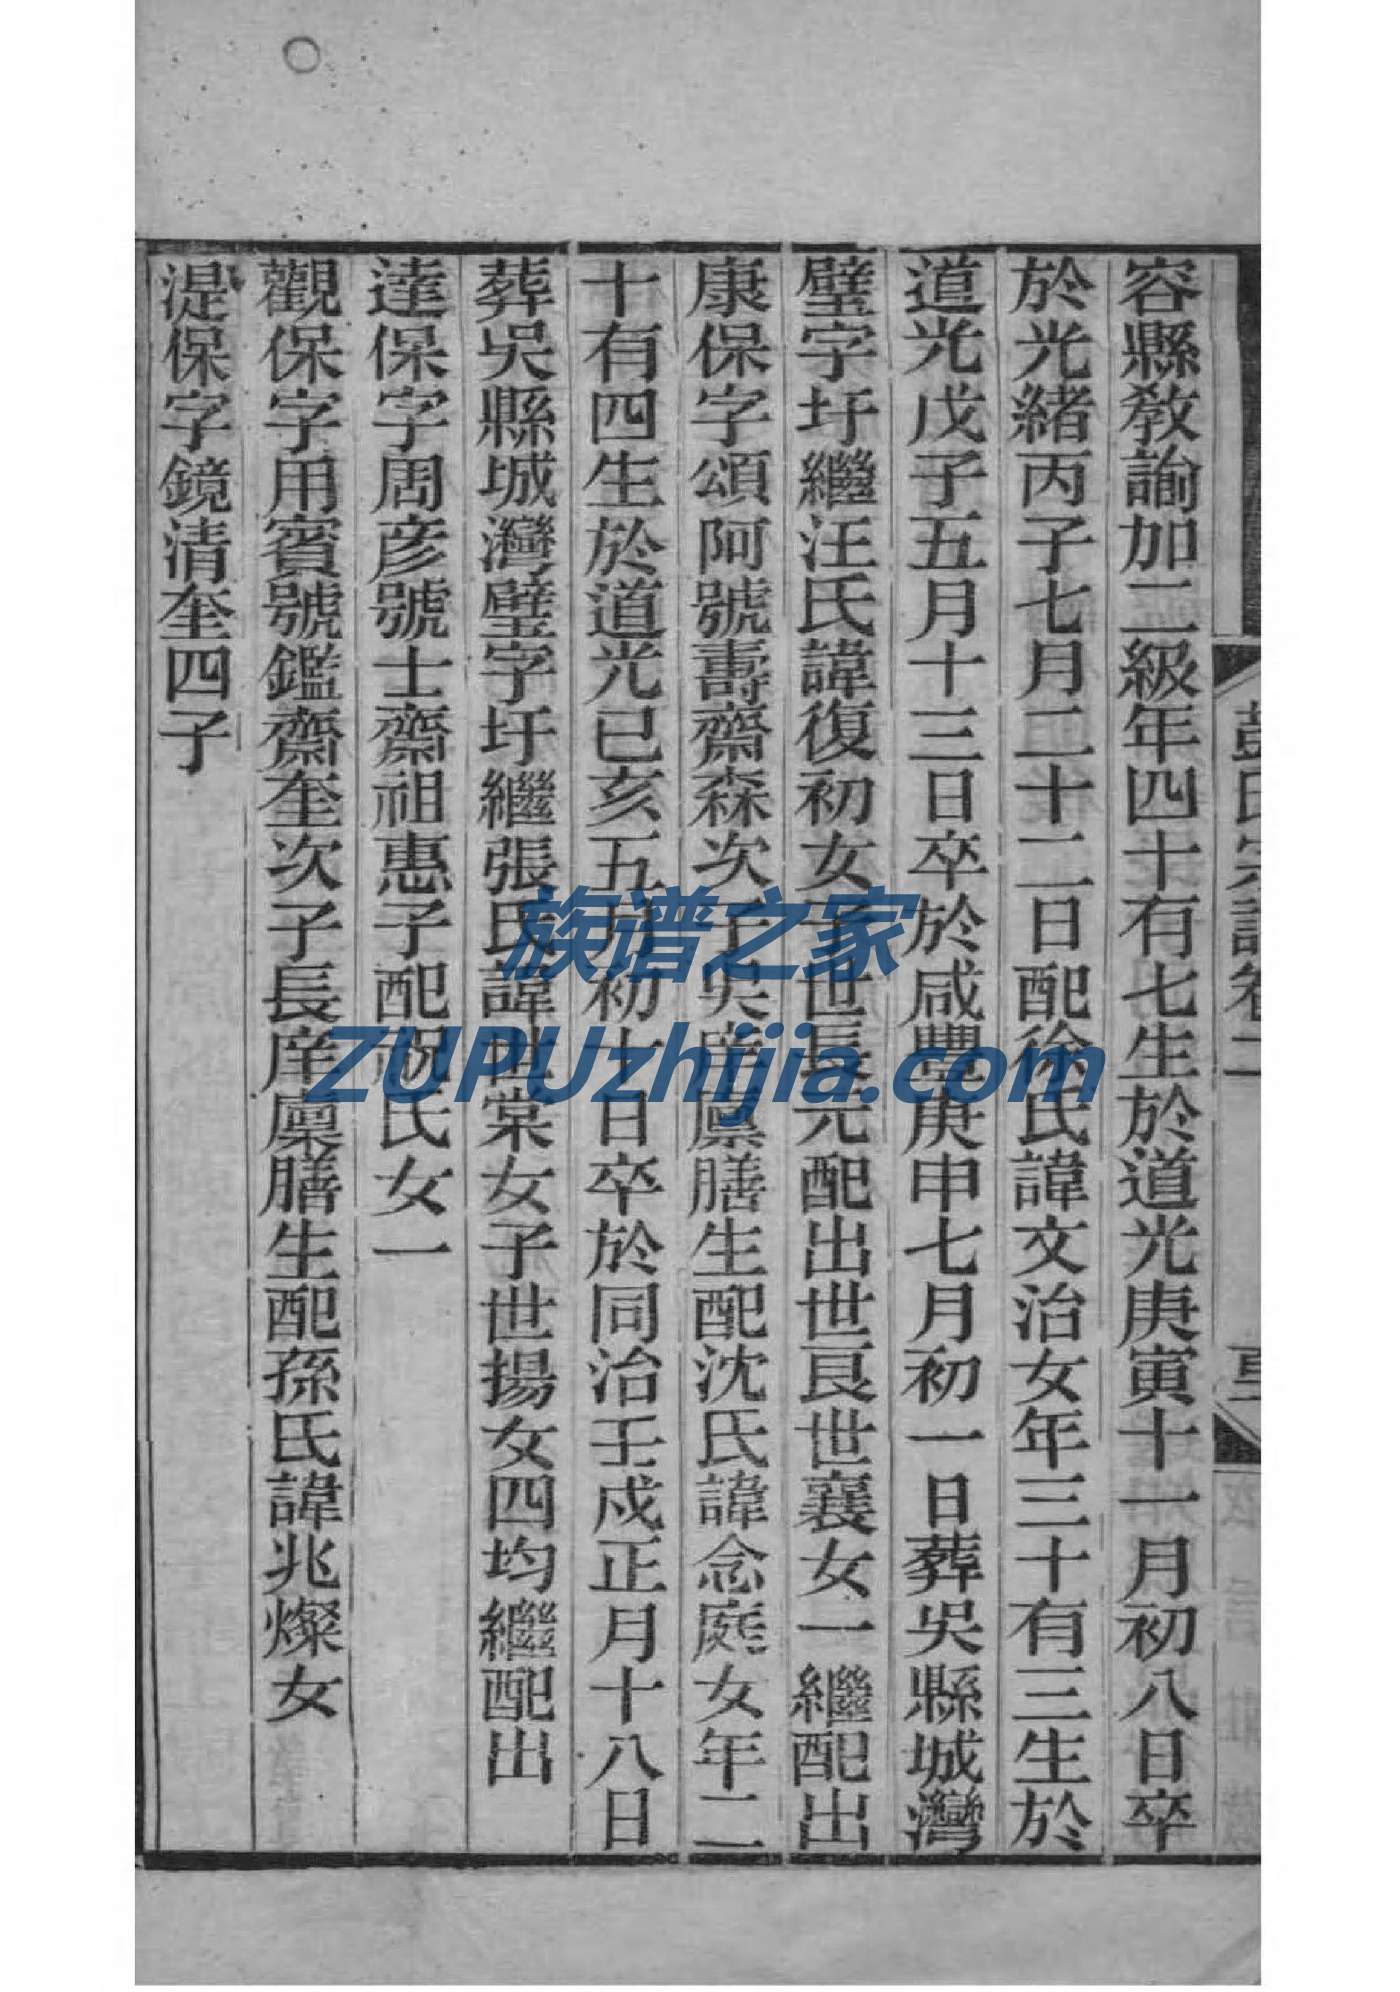 容縣敎諭加二級年四十有七生於道光庚寅十一月初八日卒
於光緒丙子七月二十二日配徐氏諱文治女年三十有三生於
道光戊子五月十三日卒於咸豐庚申七月初一日葬吳縣城灣
璧字圩繼汪氏諱復初女子世長元配出世良世襄女一繼配出
康保字頌阿號壽齋森次子吳庠廩膳生配沈氏諱念庭女年二
十有四生於道光已亥五月初十日卒於同治壬戍正月十八日
葬吳縣城灣璧字圩繼張氏諱世棠女子世揚女四均繼配出
達保字周彦號士齋祖惠子配祝氏女一
觀保字用賓號鑑齋奎次子長庠廩膳生配孫氏諱兆燦女
湜保字鏡清奎四子
族谱之家
ZUPUzhijia.com